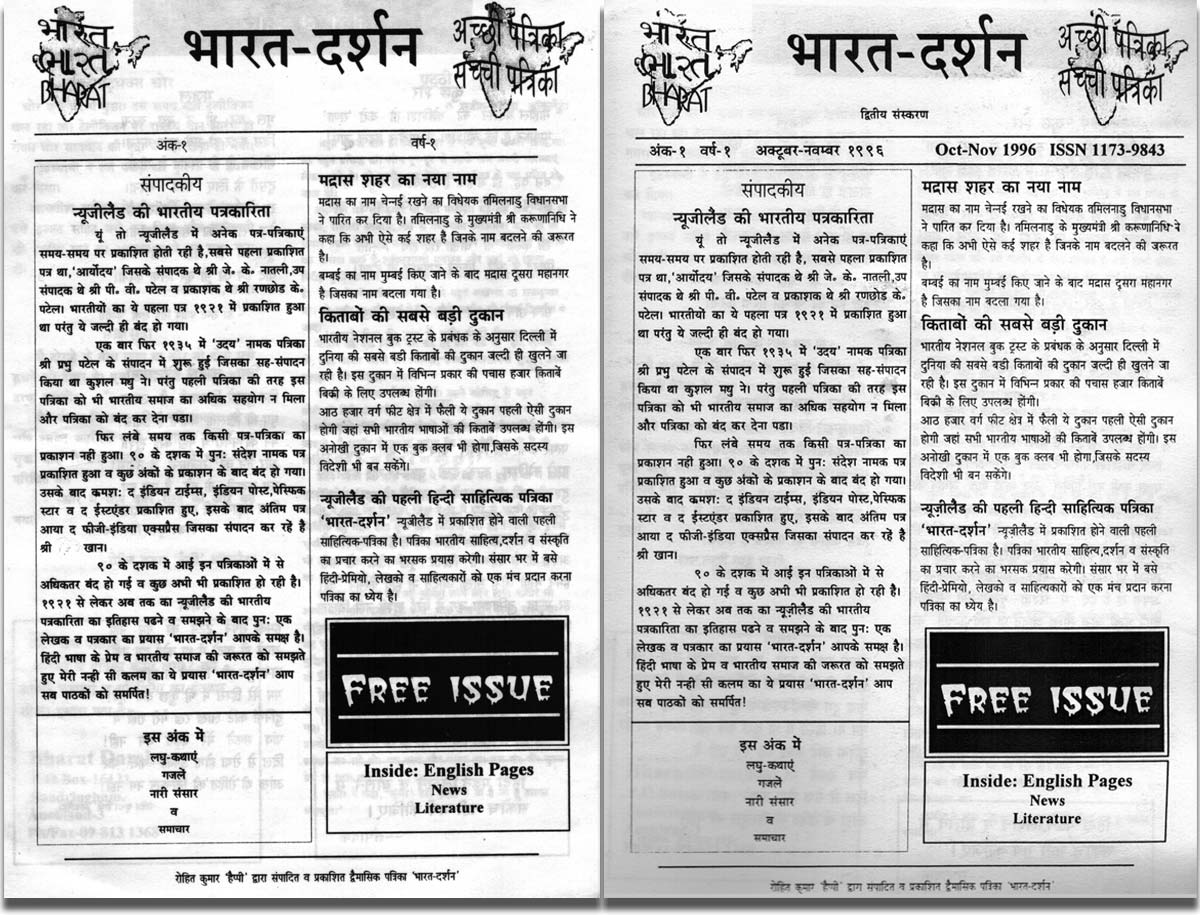 भारत
भारत
BHARAT
भारत-दर्शन
अच्छी पत्रिका
सच्ची पत्रिका
अंक-१ वर्ष-१
संपादकीय
न्यूजीलैड की भारतीय पत्रकारिता
यूं तो न्यूजीलैड में अनेक पत्र-पत्रिकाएं
समय-समय पर प्रकाशित होती रही है,सबसे पहला प्रकाशित
पत्र था,'आर्योदय' जिसके संपादक थे श्री जे. के. नातली,उप
संपादक थे श्री पी. वी. पटेल व प्रकाशक थे श्री रणछोड के.
पटेल। भारतीयों का ये पहला पत्र १९२१ में प्रकाशित हुआ
था परंतु ये जल्दी ही बंद हो गया।
एक बार फिर १९३५ में 'उदय' नामक पत्रिका
श्री प्रभु पटेल के संपादन में शुरू हुई जिसका सह-संपादन
किया था कुशल मधु ने। परंतु पहली पत्रिका की तरह इस
पत्रिका को भी भारतीय समाज का अधिक सहयोग न मिला
और पत्रिका को बंद कर देना पडा।
फिर लंबे समय तक किसी पत्र-पत्रिका का
प्रकाशन नही हुआ। ९० के दशक में पुन: संदेश नामक पत्र
प्रकाशित हुआ व कुछ अंकों के प्रकाशन के बाद बंद हो गया।
उसके बाद कमश: द इंडियन टाईम्स, इंडियन पोस्ट,पेस्फिक
स्टार व द ईस्टएंडर प्रकाशित हुए, इसके बाद अंतिम पत्र
आया द फीजी-इंडिया एक्सप्रैस जिसका संपादन कर रहें है
श्री खान।
९० के दशक में आई इन पत्रिकाओं में से
अधिकतर बंद हो गई व कुछ अभी भी प्रकाशित हो रही है।
१९२१ से लेकर अब तक का न्यूजीलैड की भारतीय
पत्रकारिता का इतिहास पढने व समझने के बाद पुन: एक
लेखक व पत्रकार का प्रयास 'भारत-दर्शन' आपके समक्ष है।
हिंदी भाषा के प्रेम व भारतीय समाज की जरूरत को समझते
हुए मेरी नन्ही सी कलम का ये प्रयास 'भारत-दर्शन' आप
सब पाठकों को समर्पित!
इस अंक में
लघु-कथाएं
गजलें
नारी संसार
व
समाचार
मद्रास शहर का नया नाम
मद्रास का नाम चेन्नई रखने का विधेयक तमिलनाडु विधानसभा
ने पारित कर दिया है। तमिलनाडु के मुख्यमंत्री श्री करूणानिधि ने
कहा कि अभी ऐसे कई शहर है जिनके नाम बदलने की जरूरत
है।
बम्बई का नाम मुम्बई किए जाने के बाद मद्रास दूसरा महानगर
है जिसका नाम बदला गया है।
किताबों की सबसे बड़ी दुकान
भारतीय नेशनल बुक ट्रस्ट के प्रबंधक के अनुसार दिल्ली में
दुनिया की सबसे बडी किताबों की दुकान जल्दी ही खुलने जा
रही है। इस दुकान में विभिन्न प्रकार की पचास हजार किताबें
बिकी के लिए उपलब्ध होंगी।
आठ हजार वर्ग फीट क्षेत्र में फैली ये दुकान पहली ऐसी दुकान
होगी जहां सभी भारतीय भाषाओं की किताबें उपलब्ध होंगी। इस
अनोखी दुकान में एक बुक क्लब भी होगा,जिसके सदस्य
विदेशी भी बन सकेंगे।
न्यूजीलैड की पहली हिन्दी साहित्यिक पत्रिका
'भारत-दर्शन' न्यूजीलैड में प्रकाशित होने वाली पहली
साहित्यिक-पत्रिका है। पत्रिका भारतीय साहित्य,दर्शन व संस्कृति
का प्रचार करने का भरसक प्रयास करेगी। संसार भर में बसे
हिंदी-प्रेमियो, लेखको व साहित्यकारों को एक मंच प्रदान करना
पत्रिका का ध्येय है।
FREE ISSUE
Inside: English Pages
News
Literature
रोहित कुमार 'हैप्पी' द्वारा संपादित व प्रकाशित द्वैमासिक पत्रिका 'भारत-दर्शन'
भारत
भारत
BHARAT
भारत-दर्शन
अच्छी पत्रिका
सच्ची पत्रिका
द्वितीय संस्करण
अंक-१ वर्ष-१ अक्टूबर-नवम्बर १९९६ Oct-Nov 1996 ISSN 1173-9843
संपादकीय
न्यूजीलैड की भारतीय पत्रकारिता
यूं तो न्यूजीलैड में अनेक पत्र-पत्रिकाएं
समय-समय पर प्रकाशित होती रही है, सबसे पहला प्रकाशित
पत्र था,'आर्योदय' जिसके संपादक थे श्री जे. के. नातली,उप
संपादक थे श्री पी. वी. पटेल व प्रकाशक थे श्री रणछोड के.
पटेल। भारतीयों का ये पहला पत्र १९२१ में प्रकाशित हुआ
था परंतु ये जल्दी ही बंद हो गया।
एक बार फिर १९३५ में 'उदय' नामक पत्रिका
श्री प्रभु पटेल के संपादन में शुरू हुई जिसका सह-संपादन
किया था कुशल मधु ने। परंतु पहली पत्रिका की तरह इस
पत्रिका को भी भारतीय समाज का अधिक सहयोग न मिला
और पत्रिका को बंद कर देना पडा।
फिर लंबे समय तक किसी पत्र-पत्रिका का
प्रकाशन नही हुआ। ९० के दशक में पुन: संदेश नामक पत्र
प्रकाशित हुआ व कुछ अंकों के प्रकाशन के बाद बंद हो गया।
उसके बाद कमश: द इंडियन टाईम्स, इंडियन पोस्ट,पेस्फिक
स्टार व द ईस्टएंडर प्रकाशित हुए, इसके बाद अंतिम पत्र
आया द फीजी-इंडिया एक्सप्रैस जिसका संपादन कर रहें है
श्री खान।
९० के दशक में आई इन पत्रिकाओं में से
अधिकतर बंद हो गई व कुछ अभी भी प्रकाशित हो रही है।
१९२१ से लेकर अब तक का न्यूज़ीलैड की भारतीय
पत्रकारिता का इतिहास पढने व समझने के बाद पुन: एक
लेखक व पत्रकार का प्रयास 'भारत-दर्शन' आपके समक्ष है।
हिंदी भाषा के प्रेम व भारतीय समाज की जरूरत को समझते
हुए मेरी नन्ही सी कलम का ये प्रयास 'भारत-दर्शन' आप
सब पाठकों को समर्पित!
इस अंक में
लघु-कथाएं
गजलें
नारी संसार
व
समाचार
मद्रास शहर का नया नाम
मद्रास का नाम चेन्नई रखने का विधेयक तमिलनाडु विधानसभा
ने पारित कर दिया है। तमिलनाडु के मुख्यमंत्री श्री करूणानिधि ने
कहा कि अभी ऐसे कई शहर है जिनके नाम बदलने की जरूरत
है।
बम्बई का नाम मुम्बई किए जाने के बाद मद्रास दूसरा महानगर
है जिसका नाम बदला गया है।
किताबों की सबसे बड़ी दुकान
भारतीय नेशनल बुक ट्रस्ट के प्रबंधक के अनुसार दिल्ली में
दुनिया की सबसे बडी किताबों की दुकान जल्दी ही खुलने जा
रही है। इस दुकान में विभिन्न प्रकार की पचास हजार किताबें
बिकी के लिए उपलब्ध होंगी।
आठ हजार वर्ग फीट क्षेत्र में फैली ये दुकान पहली ऐसी दुकान
होगी जहां सभी भारतीय भाषाओं की किताबें उपलब्ध होंगी। इस
अनोखी दुकान में एक बुक क्लब भी होगा,जिसके सदस्य
विदेशी भी बन सकेंगे।
न्यूज़ीलैड की पहली हिन्दी साहित्यिक पत्रिका
'भारत-दर्शन' न्यूज़ीलैड में प्रकाशित होने वाली पहली
साहित्यिक-पत्रिका है। पत्रिका भारतीय साहित्य,दर्शन व संस्कृति
का प्रचार करने का भरसक प्रयास करेगी। संसार भर में बसे
हिंदी-प्रेमियो, लेखको व साहित्यकारों को एक मंच प्रदान करना
पत्रिका का ध्येय है।
FREE ISSUE
Inside: English Pages
News
Literature
रोहित कुमार 'हैप्पी' द्वारा संपादित व प्रकाशित द्वैमासिक पत्रिका 'भारत-दर्शन'